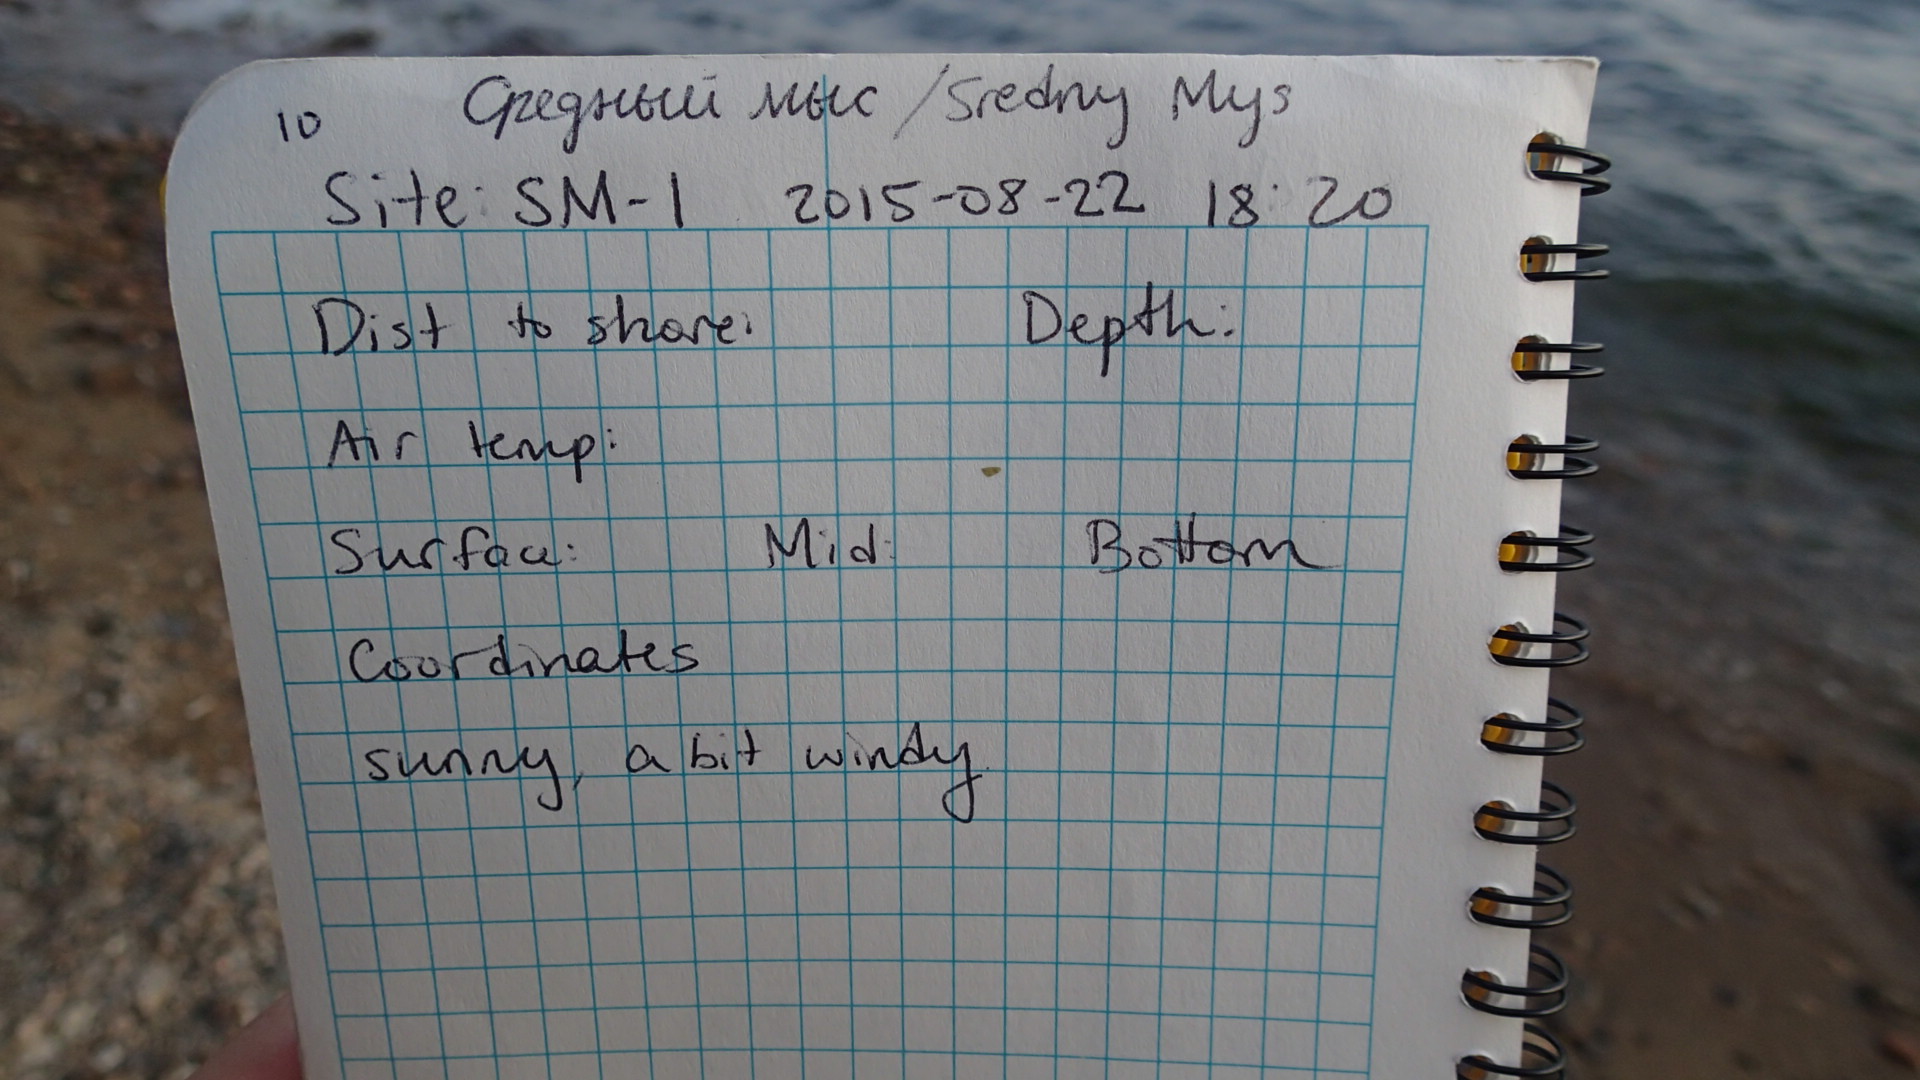 10 Средный мыс / Sredny Mys
Site: SM-1 2015-08-22 18:20
Dist to shore: Depth:
Air temp:
Surface: Mid: Bottom
Coordinates
sunny, a bit windy.